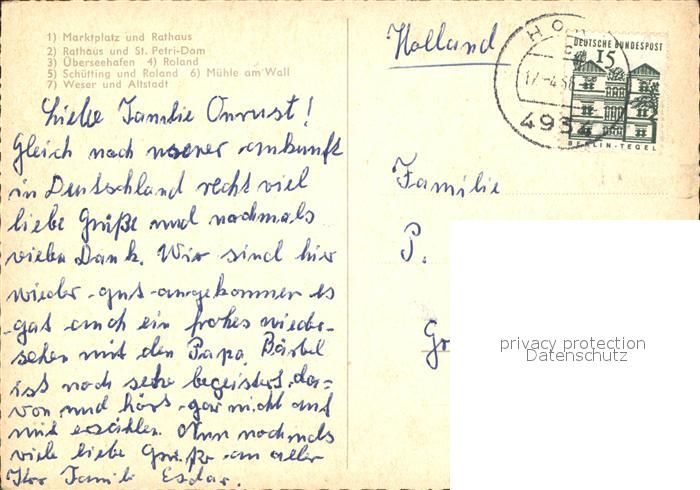 1) Marktplatz und Rathaus
2) Rathaus und St. Petri-Dom
3) Überseehafen 4) Roland
5) Schütting und Roland 6) Mühle am Wall
7) Weser und Altstadt
Liebe Familie Onrust!
Gleich nach unserer ankunft
in Deutschland recht viel
liebe Grüße und nochmals
vielen Dank. Wir sind hier
wieder gut angekommen es
gab auch ein frohes wieder-
sehen mit den Papa. Bärbel
ist noch sehr begeistert da=
von und hört gar nicht auf
mit erzählen. Nun nochmals
viele liebe Grüße an alle
Ihre Famili Esdar.
Holland
DEUTSCHE BUNDESPOST
15
BERLIN-TEGEL
4934
Familie
P.
Gr
privacy protection
Datenschutz